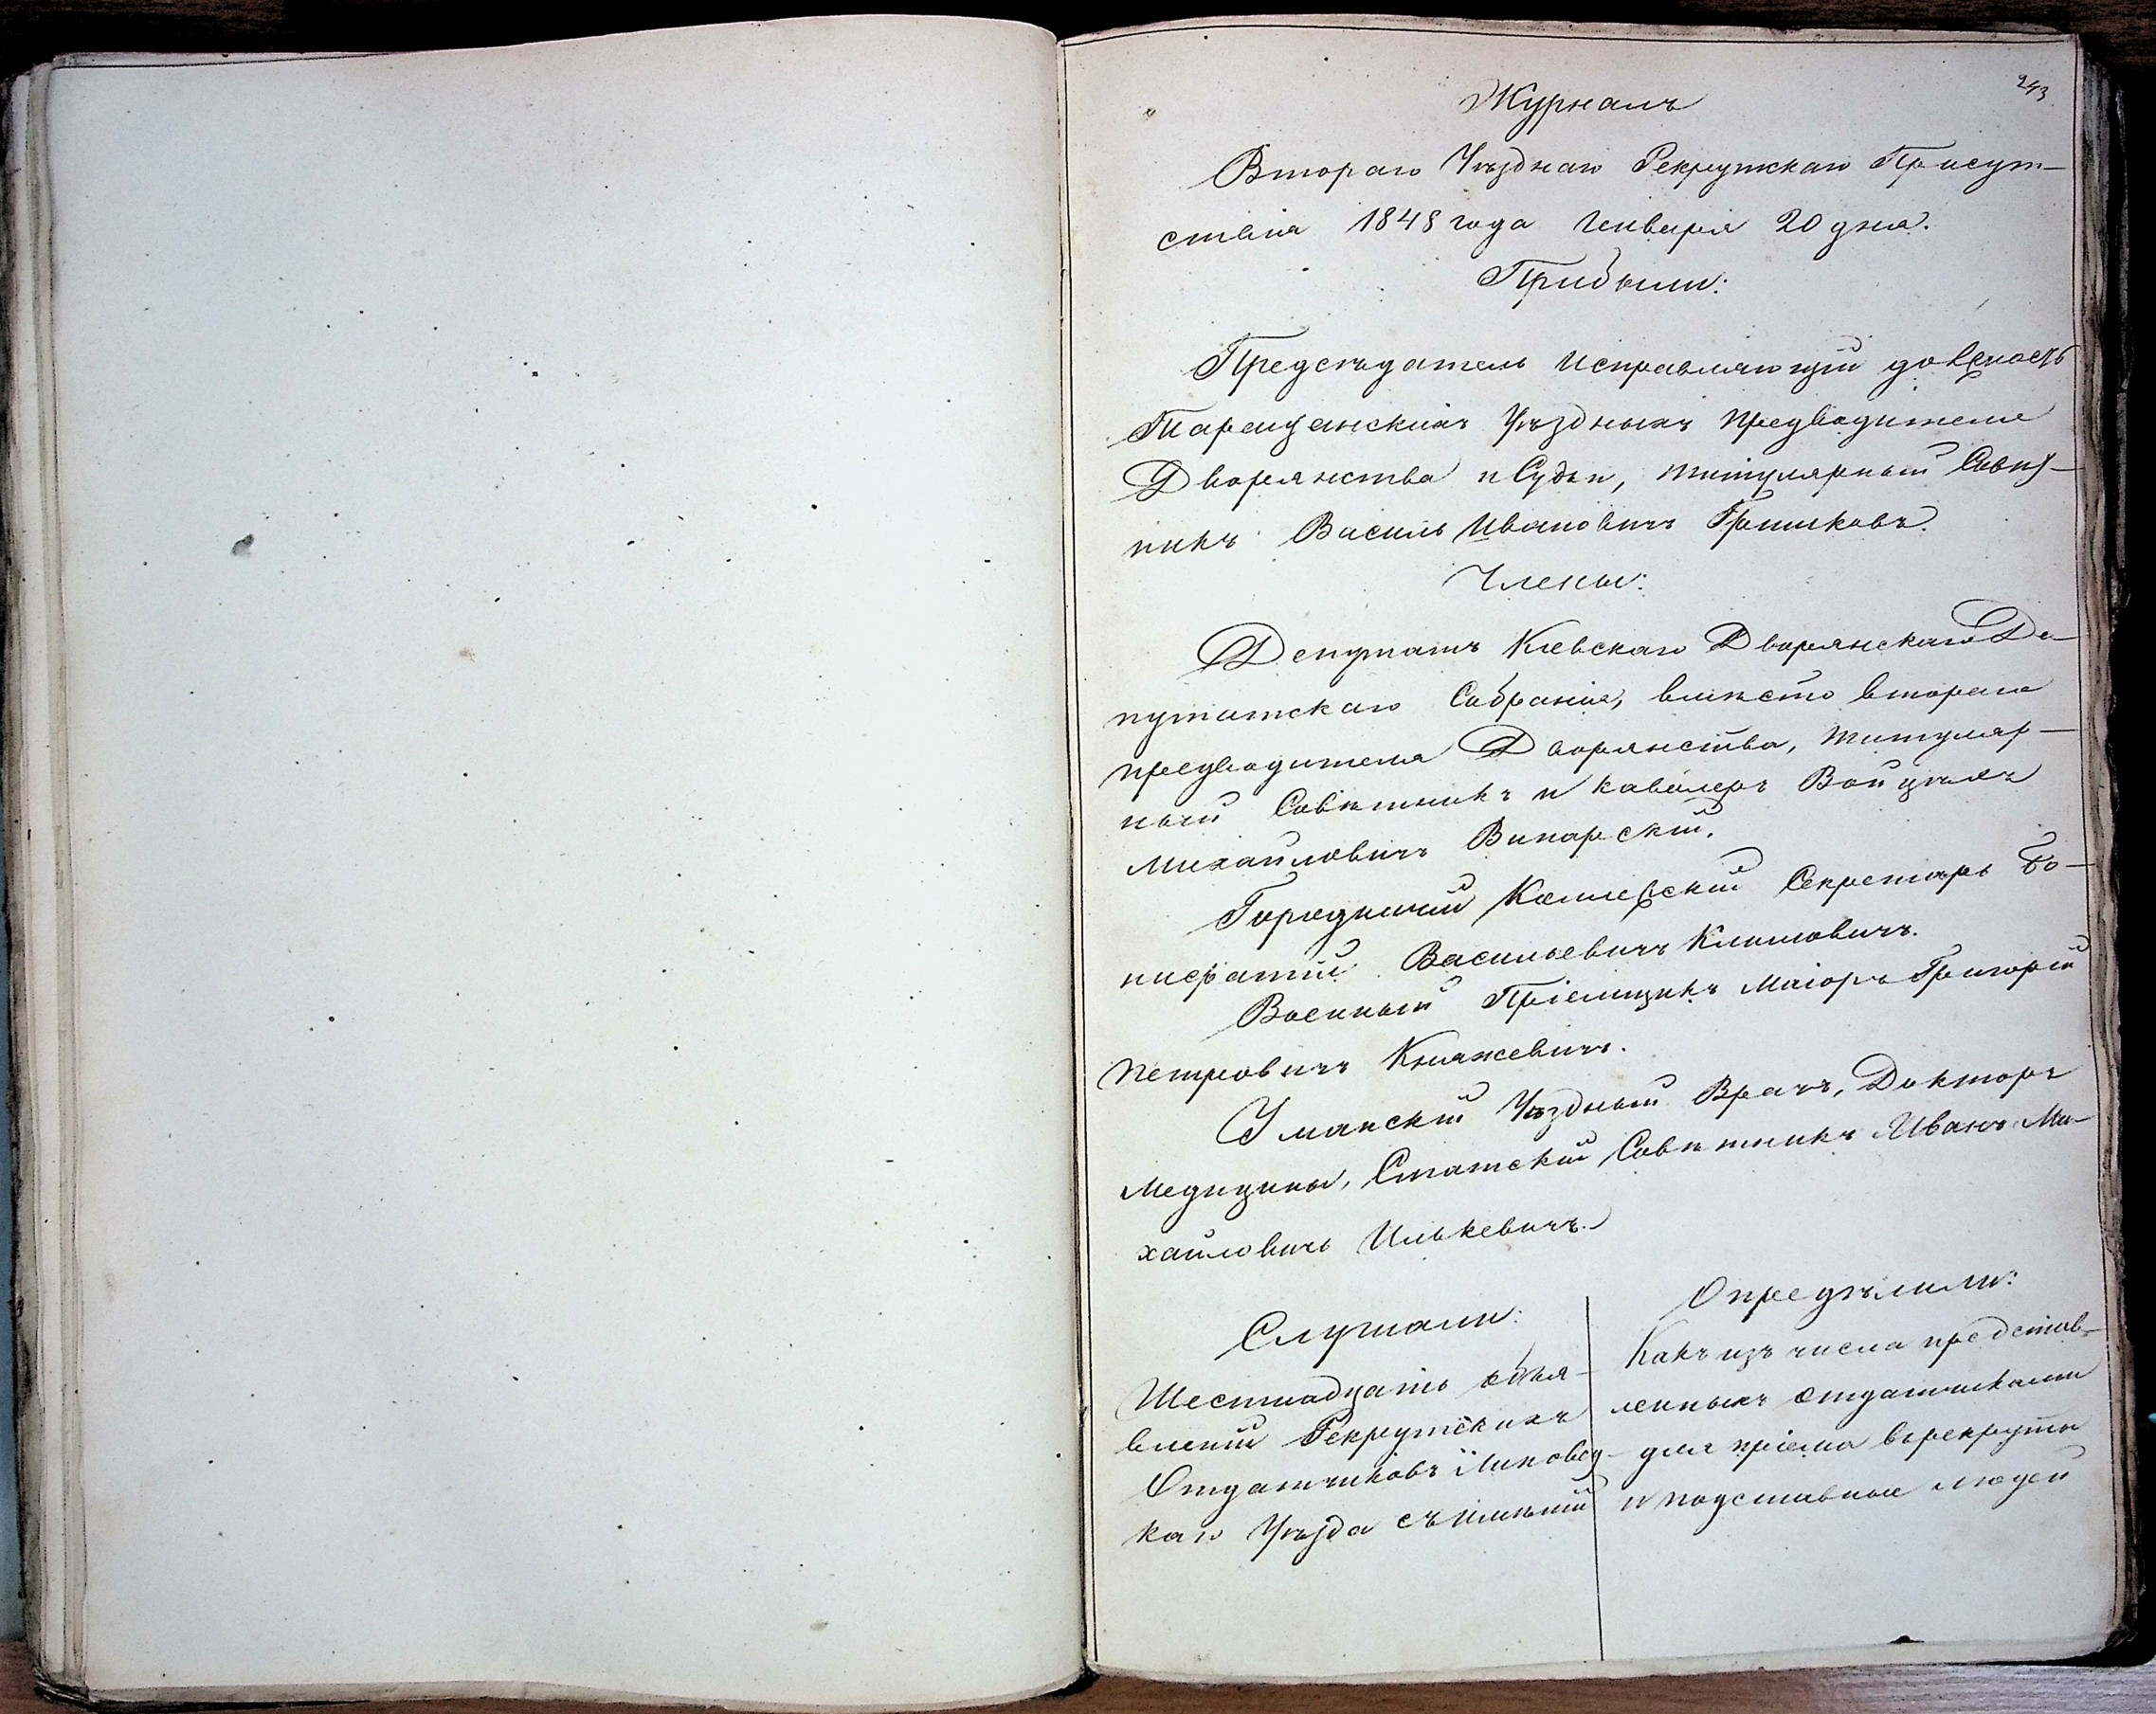 243
Журналъ
Втораго Уѣзднаго Рекрутскаго Присут-
ствія 1848 года Генваря 20 дня.
Прибыли:
Предсѣдатель Исправляющій должность
Таращанскихъ Уѣздныхъ Предводителя
Дворянства и Судьи, титулярный Совѣт-
никъ Василь Ивановичъ
Члены:
Депутатъ Кіевскаго Дворянскаго Де-
путатскаго Собранія, вмѣсто втораго
предводителя Дворянства, титуляр-
ный Совѣтникъ и кавалеръ Войцѣхъ
Михайловичъ Винарскій.
Городничій Коллежскій Секретарь Бо-
нифатій Васильевичъ Климовичъ.
Военный Пріемщикъ Маіоръ Григорій
Петровичъ Княжевичъ.
Уманскій Уѣздный Врачъ, Докторъ
Медицины, Статскій Совѣтникъ Иванъ Ми-
хайловичъ Илькевичъ.
Слушали:
Шестнадцать объя-
вленій Рекрутскихъ
Отдатчиковъ Липовец-
каго Уѣзда съ имѣній
Опредѣлили:
Какъ изъ числа представ-
ленныхъ отдатчиками
для пріема въ рекруты
и подставныхъ людей